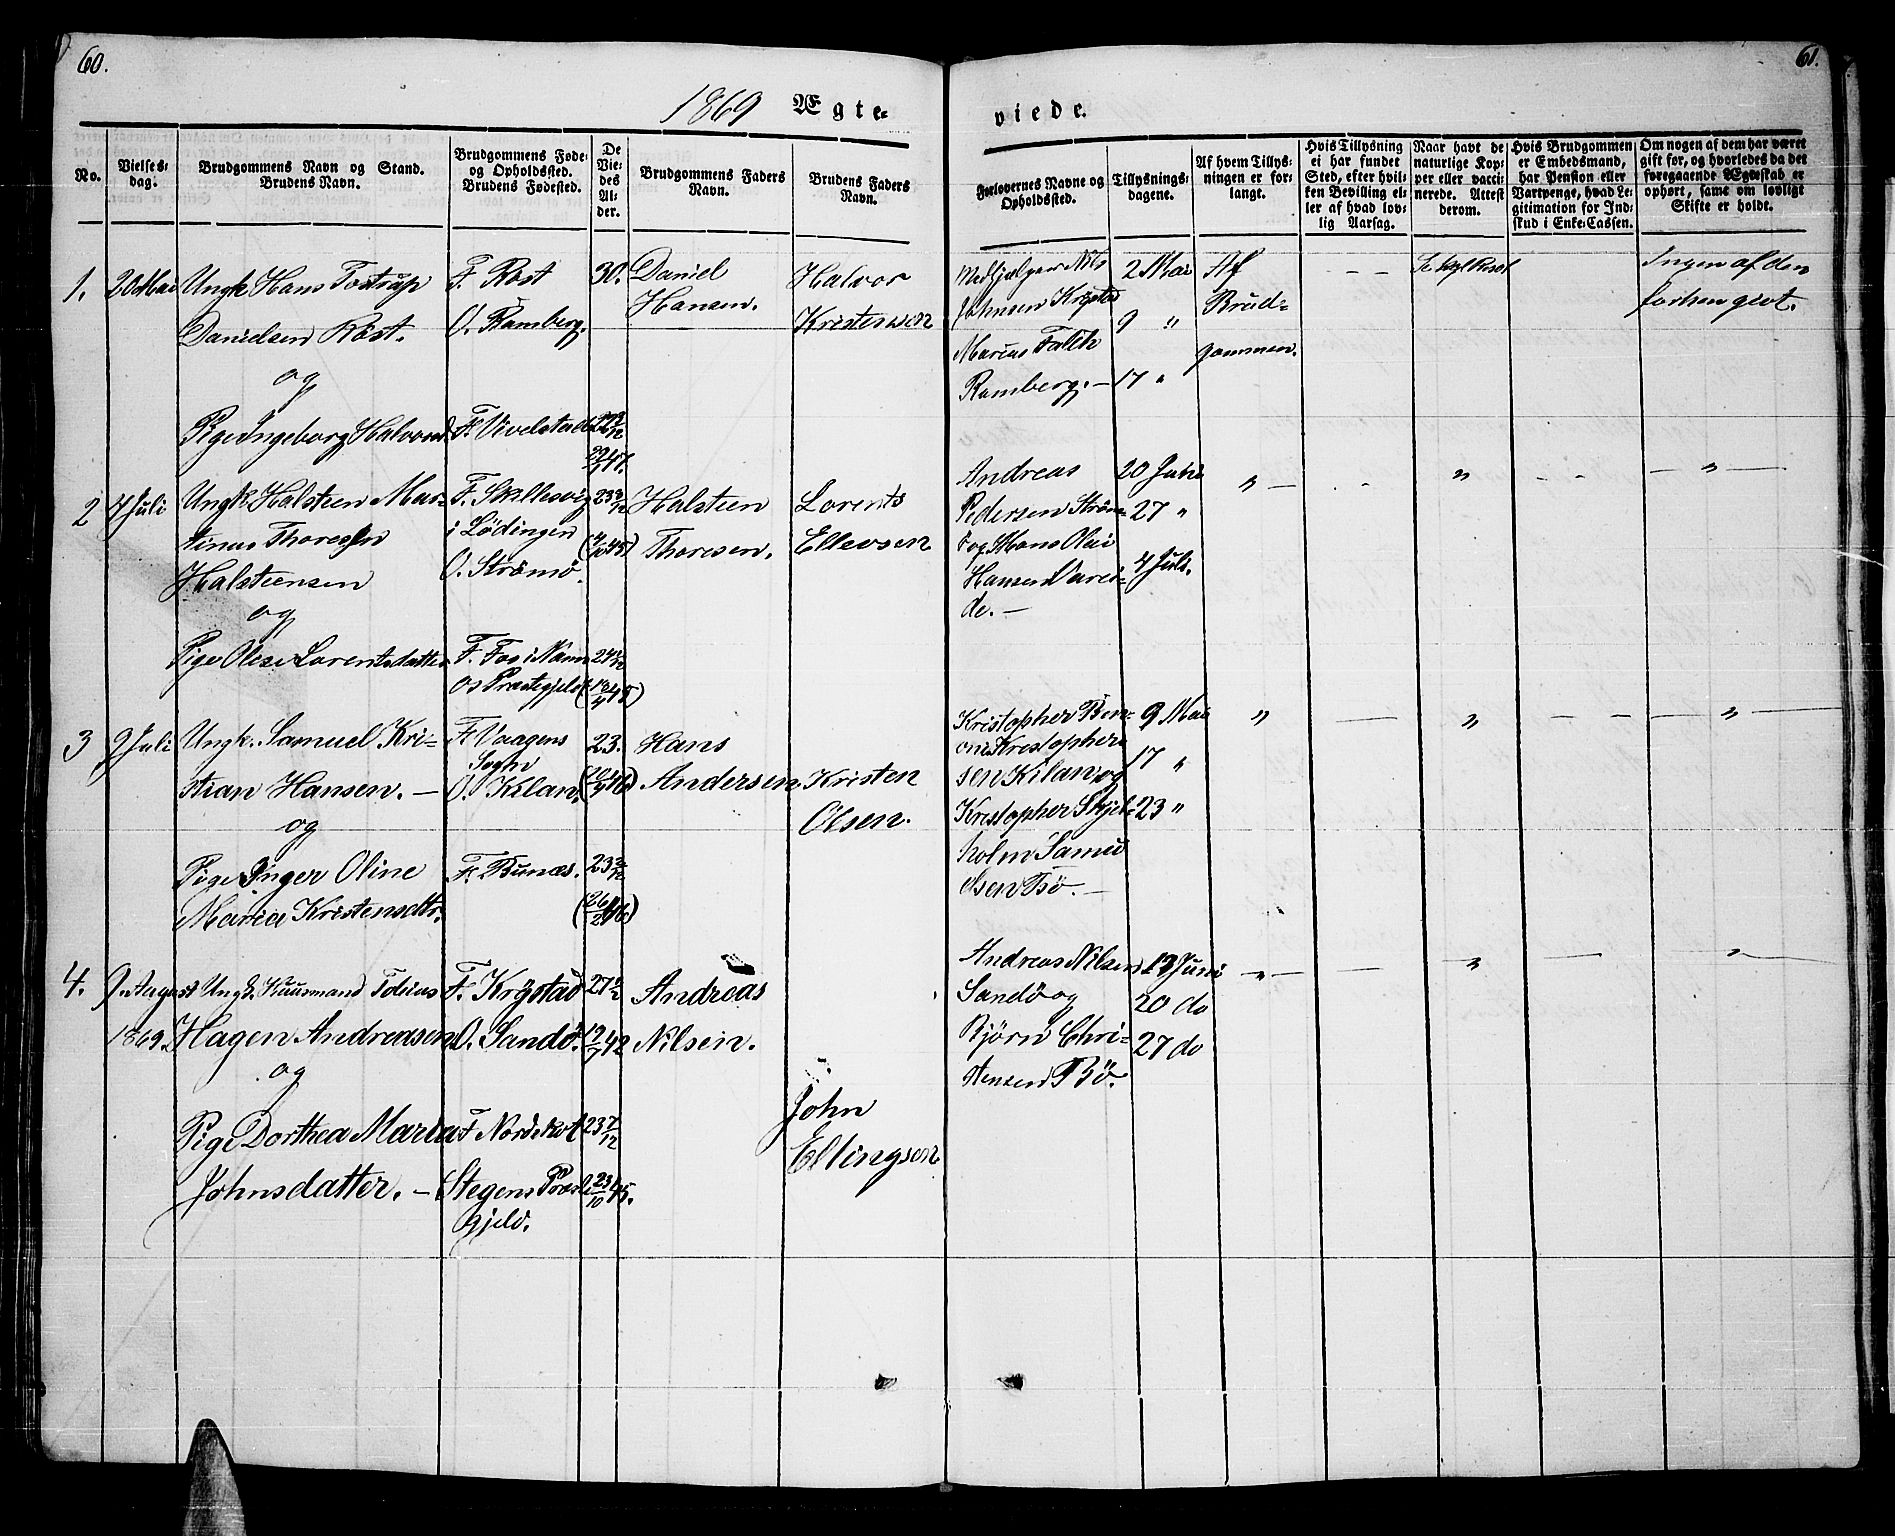 60.
61.
1869 Ægte-
viede.
No.
Vielses-
dag.
Brudgommens Navn og Stand.
Brudens Navn.
Brudgommens Føde-
og Opholdssted.
Brudens Fødested.
De
Vie-
des
Al-
der.
Brudgommens Faders
Navn.
Brudens Faders
Navn.
Forlovernes Navne og
Opholdssted.
Tillysnings-
dagene.
Af hvem Tillys-
ningen er for-
langt.
Hvis Tillysning
ei har fundet
Sted, efter hvil-
ken Bevilling el-
ler af hvad lov-
lig Aarsag.
Naar havt de
naturlige Kop-
per eller vacci-
nerede. Attest
derom.
Hvis Brudgommen
er Embedsmand,
har Pension eller
Vartpenge, hvad Le-
gitimation for Ind-
skud i Enke-Cassen.
Om nogen af dem har været
gift før, og hvorledes da det
foregaaende Ægteskab er
ophørt, samt om lovligt
Skifte er holdt.
1.
20 Mai
Ungk. Hans Tostrup
Danielsen Röst.
og
Pige Ingeborg Halvorsd.
F. Röst
O. Ramberg.
F. Vivelstad
30.
Daniel
Hansen.
Halvor
Kristensen
Medhjælper Nils
Johnsen
Marius Falch
Ramberg. —
2 Mai
9 "
17 "
Af
Brud-
gommen.
— —
Ingen af dem
forhen givt.
2
4 Juli
Ungk. Halsteen Mar-
tinus Thoresen
Halsteensen
og
Pige Olise Lorentsdatter
F. Skillesvig
i Lödingen
O. Strömö.
F. Fos i Nams
os Præstegjeld
Halsteen
Thoresen.
Lorents
Ellevsen
Andreas
Pedersen Ström-
ö og Hans Olai
Hansen
de. —
20 Juni
27 "
4 Juli.
"
- -
"
- -
— " —
3
9 Juli
Ungk. Samuel Kri-
stian Hansen. —
og
Pige Inger Oline
Maria Kristensdtr.
F. Vaagens
Sogn
O. Kilan.
F. Bunæs.
23.
Hans
Andersen
Kristen
Olsen.
Kristopher Ben-
oni Kristopher-
sen Kilan og
Kristopher Skjel-
holm Samu
elsen Bö. —
9 Mai
17 "
23 "
"
—
"
— —
— " —
4.
9. August
1869.
Ungk. Tobias
Hagen Andreasen
og
Pige Dorthea Maria
Johnsdatter. —
F. Krystad
O. Sandö.
F. Nordskot
Stegens Præst
gjeld.
Andreas
Nilsen.
John
Ellingsen
Andreas Nilsen
Sandö og
Björn Chri-
stensen Bö.
13 Juni
20 do
27 do
"
—
"
—
"